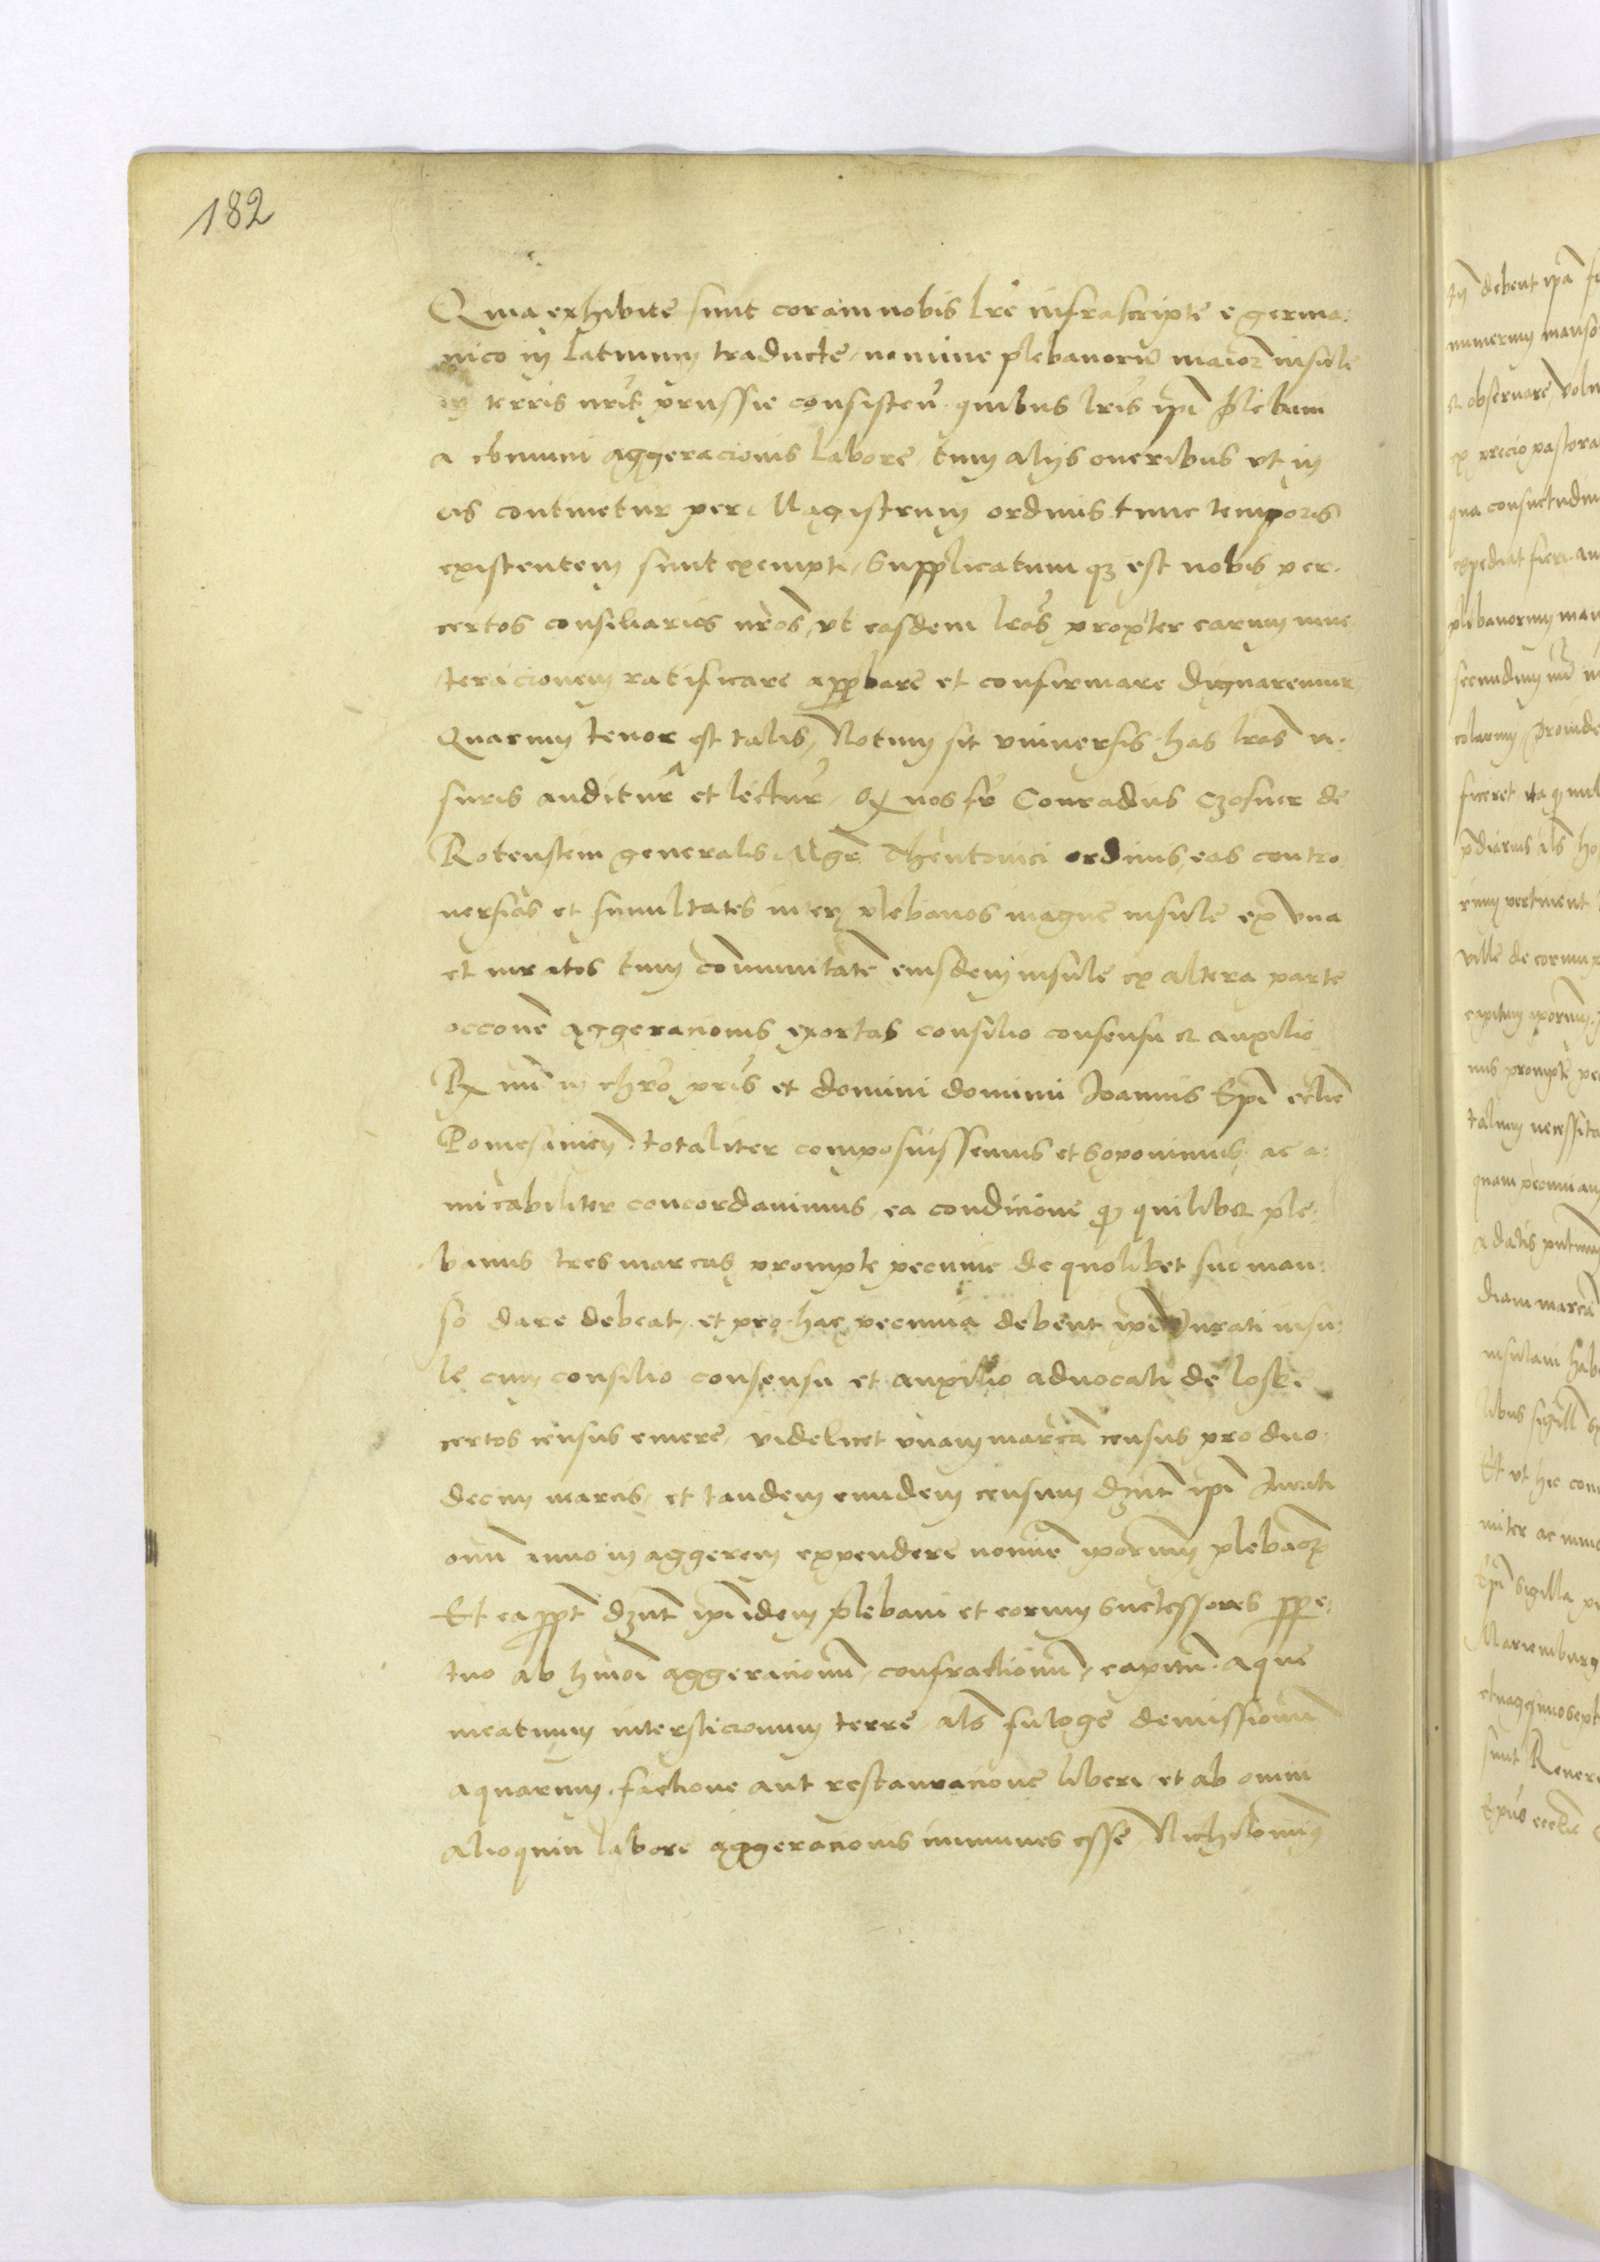 182
Quia exhibite sunt coram nobis lre infrascripte e germa
nico in latinum traducte, nomine plebanorum maior insule
in terris nris prussie consisten. quibus lris ipi plebani
a communi aggeracionis labore, tum alijs oneribus ut in
eis continetur per Magistrum ordinis tunc temporis
existentem sunt exempti, Supplicatumq3 est nobis per
certos consiliarios nros, ut easdem lras propter earum inue
teracionem ratificare approbare et confirmare dignaremur
Quarum tenor est talis, Notum sit vniuersis has lras vi
suris auditur et lectur, Q nos fr Conradus Czolner de
Rotenstein generalis Mgr Theutonici ordinis, eas contro
uersias et simultates inter plebanos magne insule ex vna
et iuratos tum communitatem eiusdem insule ex altera parte
occone aggeracionis exortas consilio consensu et auxilio
Rmi in chro pris et domini domini Joannis Epi eclie
Pomesanien. totaliter composuissemus et soponimus, ac a
micabiliter concordauimus, ea condicione q quilibet ple
banus tres marcas prompte pecunie de quolibet suo man
so dare debeat, et pro hac pecunia debent ipi Jurati insu
le cum consilio consensu et auxilio aduocati de loske
certos census emere, videlicet vnam marcam census pro duo
decim marcis, et tandem eundem censum dznt ipi Jurati
omni anno in aggerem expendere nomine iporum plebanor
Et ea ppt dznt ipi idem plebani et eorum successores ppe
tuo ab hmoi aggeracionum, confractionum, capitum aque
meatuum intersticionum terre, als fuloge demissionum
aquarum factione aut restauracione liberi, et ab omni
alioquin labore aggeracionis immunes esse, Nichilominus
debent ipa
numerum manso
et obseruare
ex precio pastora
qua consuetudin
expediat fieri
plebanorum man
secundum
proinde
ficeret ita q nul
ville de cornu
mus prompte pe
talium necessita
quam pecuniam
diam marcam
insulam hab
Et ut hec con
niter ac
Epi sigilla
Mariemburg
sunt Reuere
Epus eclie